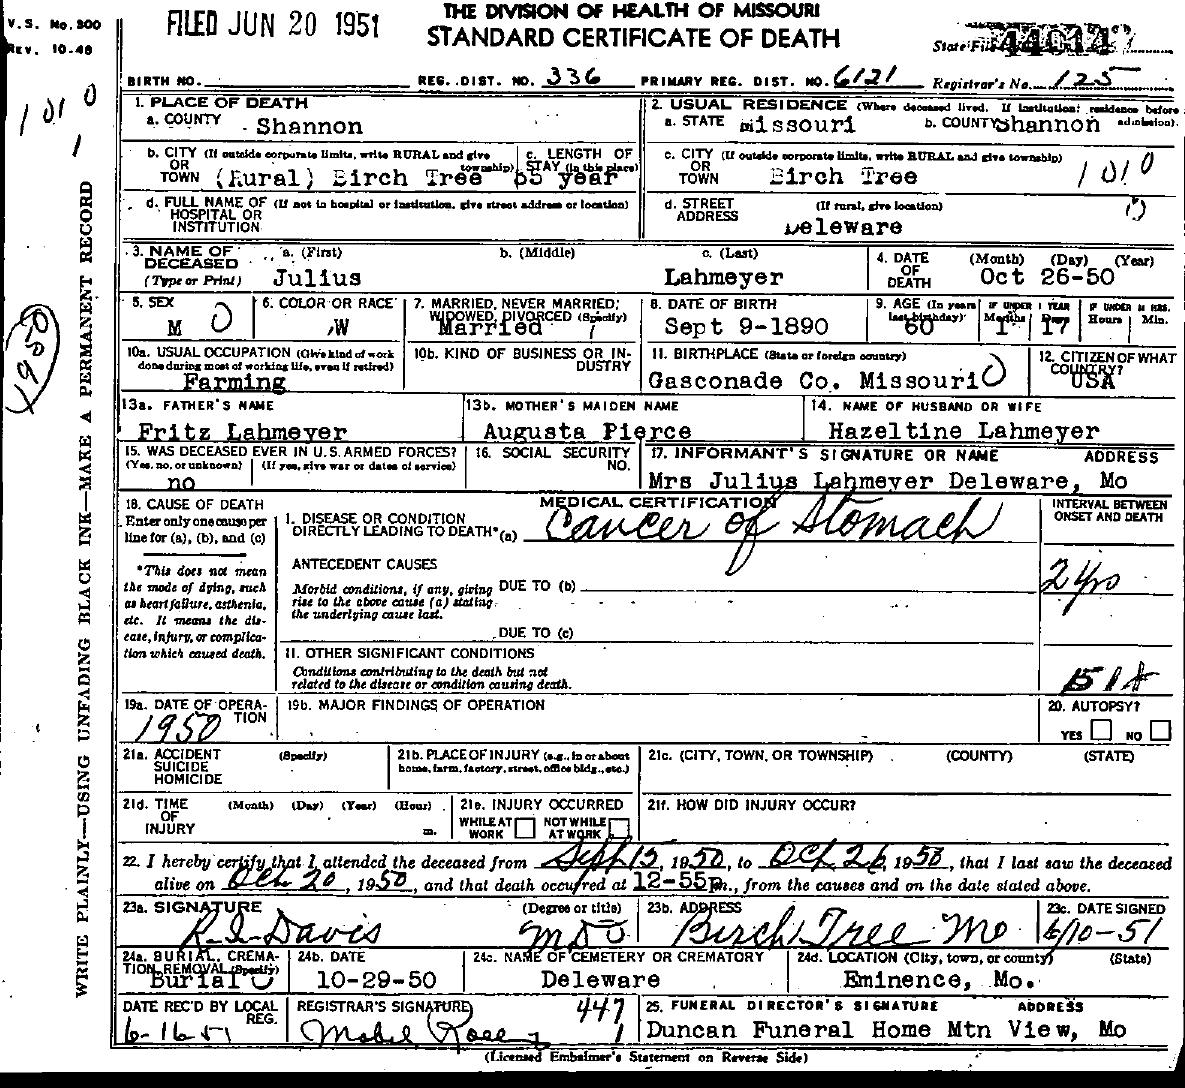 V.S. No. 300
Rev. 10-48
FILED JUN 20 1951
THE DIVISION OF HEALTH OF MISSOURI
STANDARD CERTIFICATE OF DEATH
State File No.
BIRTH NO.
REG. DIST. NO. 336
PRIMARY REG. DIST. NO. 6121
Registrar's No. 125
1010
1
1950
WRITE PLAINLY—USING UNFADING BLACK INK—MAKE A PERMANENT RECORD
1. PLACE OF DEATH
a. COUNTY Shannon
b. CITY (If outside corporate limits, write RURAL and give township)
OR TOWN (Rural) Birch Tree
c. LENGTH OF STAY (in this place)
55 year
d. FULL NAME OF HOSPITAL OR INSTITUTION (If not in hospital or institution, give street address or location)
2. USUAL RESIDENCE (Where deceased lived. If institution: residence before admission).
a. STATE Missouri
b. COUNTY Shannon
c. CITY (If outside corporate limits, write RURAL and give township)
OR TOWN Birch Tree 1010
d. STREET ADDRESS (If rural, give location)
Deleware 0
3. NAME OF DECEASED (Type or Print)
a. (First) b. (Middle) c. (Last)
Julius Lahmeyer
4. DATE OF DEATH (Month) (Day) (Year)
Oct 26-50
5. SEX
M 0
6. COLOR OR RACE
W
7. MARRIED, NEVER MARRIED, WIDOWED, DIVORCED (Specify)
Married 1
8. DATE OF BIRTH
Sept 9-1890
9. AGE (In years last birthday)
60
IF UNDER 1 YEAR Months Days
1 17
IF UNDER 24 HRS. Hours Min.
10a. USUAL OCCUPATION (Give kind of work done during most of working life, even if retired)
Farming
10b. KIND OF BUSINESS OR INDUSTRY
11. BIRTHPLACE (State or foreign country)
Gasconade Co. Missouri 0
12. CITIZEN OF WHAT COUNTRY?
USA
13a. FATHER'S NAME
Fritz Lahmeyer
13b. MOTHER'S MAIDEN NAME
Augusta Pierce
14. NAME OF HUSBAND OR WIFE
Hazeltine Lahmeyer
15. WAS DECEASED EVER IN U.S. ARMED FORCES?
(Yes, no, or unknown) (If yes, give war or dates of service)
no
16. SOCIAL SECURITY NO.
17. INFORMANT'S SIGNATURE OR NAME ADDRESS
Mrs Julius Lahmeyer Deleware, Mo
18. CAUSE OF DEATH
Enter only one cause per line for (a), (b), and (c)
*This does not mean the mode of dying, such as heart failure, asthenia, etc. It means the disease, injury, or complication which caused death.
MEDICAL CERTIFICATION
I. DISEASE OR CONDITION DIRECTLY LEADING TO DEATH*(a) Cancer of Stomach
ANTECEDENT CAUSES
Morbid conditions, if any, giving rise to the above cause (a) stating the underlying cause last.
DUE TO (b)
DUE TO (c)
II. OTHER SIGNIFICANT CONDITIONS
Conditions contributing to the death but not related to the disease or condition causing death.
INTERVAL BETWEEN ONSET AND DEATH
2 yrs
19a. DATE OF OPERATION
1950
19b. MAJOR FINDINGS OF OPERATION
20. AUTOPSY?
YES NO
21a. ACCIDENT SUICIDE HOMICIDE (Specify)
21b. PLACE OF INJURY (e.g., in or about home, farm, factory, street, office bldg., etc.)
21c. (CITY, TOWN, OR TOWNSHIP) (COUNTY) (STATE)
21d. TIME OF INJURY (Month) (Day) (Year) (Hour) m.
21e. INJURY OCCURRED
WHILE AT WORK NOT WHILE AT WORK
21f. HOW DID INJURY OCCUR?
22. I hereby certify that I attended the deceased from Sept 15, 1950, to Oct 26, 1950, that I last saw the deceased
alive on Oct. 20, 1950, and that death occurred at 12-55 P m., from the causes and on the date stated above.
23a. SIGNATURE (Degree or title)
R I Davis
23b. ADDRESS
Birch Tree Mo
23c. DATE SIGNED
6/10-51
24a. BURIAL, CREMATION, REMOVAL (Specify)
Burial
24b. DATE
10-29-50
24c. NAME OF CEMETERY OR CREMATORY
Deleware
24d. LOCATION (City, town, or county) (State)
Eminence, Mo.
DATE REC'D BY LOCAL REG.
6-16-51
REGISTRAR'S SIGNATURE
Mabel
447
1
25. FUNERAL DIRECTOR'S SIGNATURE ADDRESS
Duncan Funeral Home Mtn View, Mo
(Licensed Embalmer's Statement on Reverse Side)